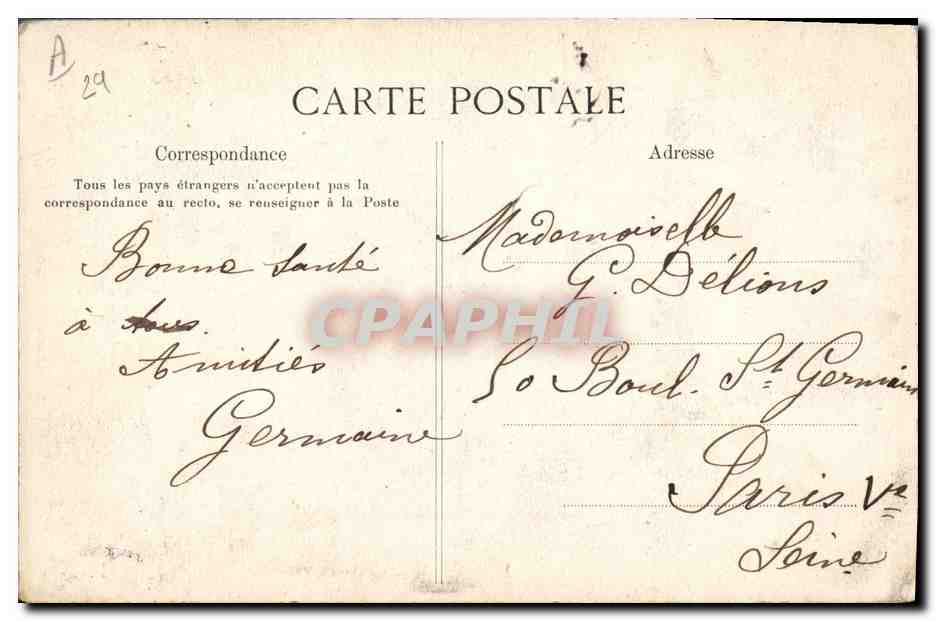 A
29
CARTE POSTALE
Correspondance
Tous les pays étrangers n'acceptent pas la
correspondance au recto, se renseigner à la Poste
Bonne santé
à tous.
Amitiés
Germaine
Adresse
Mademoiselle
G. Délions
50 Boul. St Germain
Paris Ve
Seine
CPAPHIL